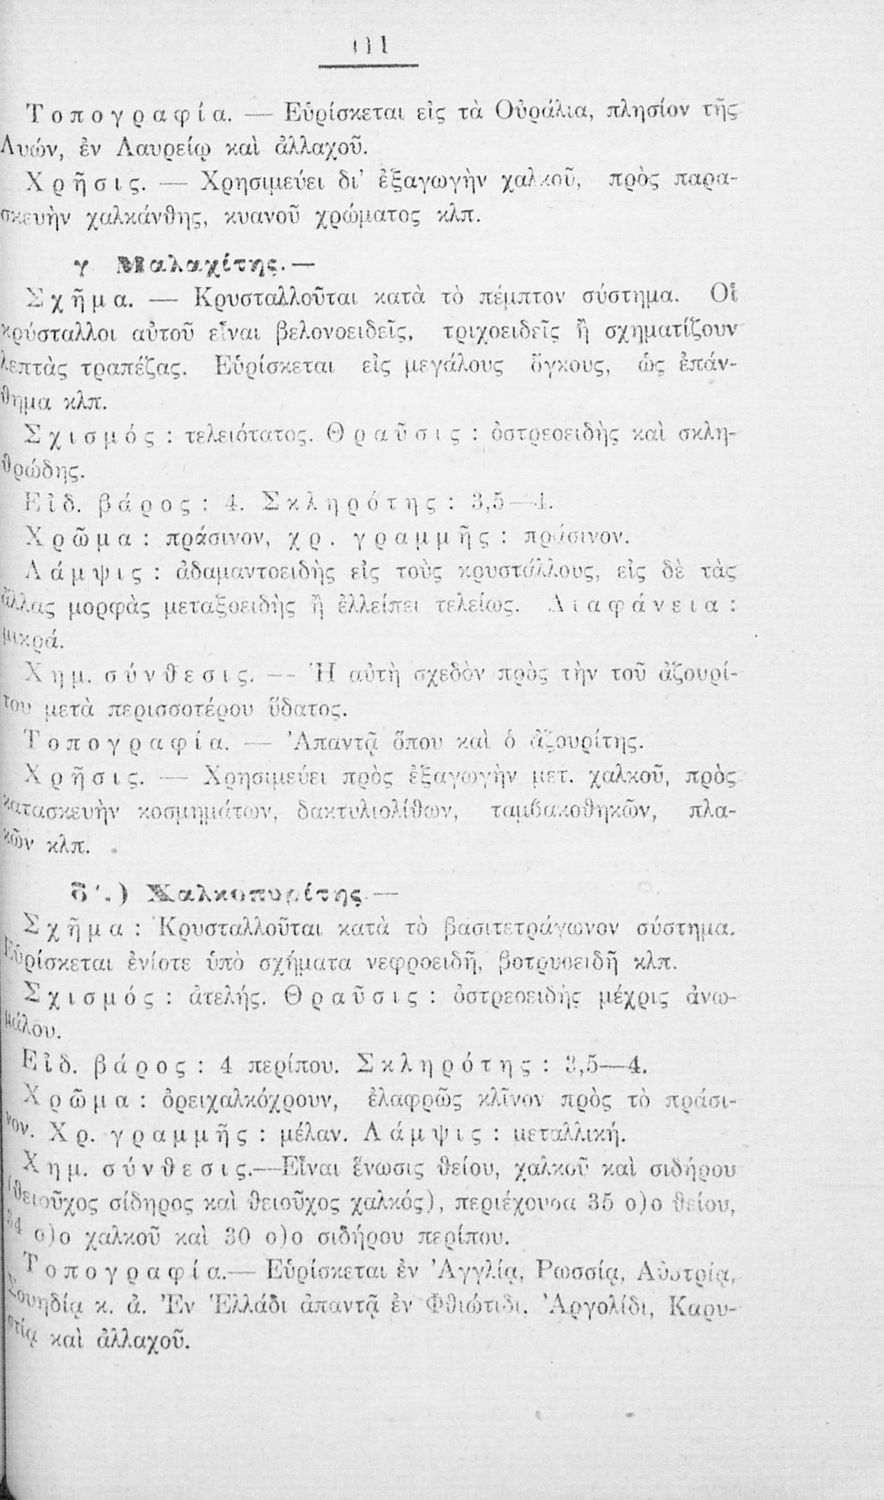 Τοπογραφία. — Εὑρίσκεται εἰς τὰ Οὐράλια, πλησίον τῆς
Λυών, ἐν Λαυρείῳ καὶ ἀλλαχοῦ.
Χρῆσις. — Χρησιμεύει δι' ἐξαγωγὴν χαλκοῦ, πρὸς παρα-
σκευὴν χαλκάνθης, κυανοῦ χρώματος κλπ.
γ Μαλαχίτης. —
Σχῆμα. — Κρυσταλλοῦται κατὰ τὸ πέμπτον σύστημα. Οἱ
κρύσταλλοι αὐτοῦ εἶναι βελονοειδεῖς, τριχοειδεῖς ἢ σχηματίζουν
λεπτὰς τραπέζας. Εὑρίσκεται εἰς μεγάλους ὄγκους, ὡς ἐπάν-
θημα κλπ.
Σχισμός : τελειότατος. Θραῦσις : ὀστρεοειδὴς καὶ σκλη-
θρώδης.
Εἰδ. βάρος : 4. Σκληρότης : 3,5—4.
Χρῶμα : πράσινον, χρ. γραμμῆς : πράσινον.
Λάμψις : ἀδαμαντοειδὴς εἰς τοὺς κρυστάλλους, εἰς δὲ τὰς
ἄλλας μορφὰς μεταξοειδὴς ἢ ἐλλείπει τελείως. Διαφάνεια :
μικρά.
Χημ. σύνθεσις. — Ἡ αὐτὴ σχεδὸν πρὸς τὴν τοῦ ἀζουρί-
του μετὰ περισσοτέρου ὕδατος.
Τοπογραφία. — Ἀπαντᾷ ὅπου καὶ ὁ ἀζουρίτης.
Χρῆσις. — Χρησιμεύει πρὸς ἐξαγωγὴν μετ. χαλκοῦ, πρὸς
κατασκευὴν κοσμημάτων, δακτυλιολίθων, ταμβακοθηκῶν, πλα-
κῶν κλπ.
δ'.) Χαλκοπυρίτης —
Σχῆμα : Κρυσταλλοῦται κατὰ τὸ βασιτετράγωνον σύστημα.
Εὑρίσκεται ἐνίοτε ὑπὸ σχήματα νεφροειδῆ, βοτρυοειδῆ κλπ.
Σχισμός : ἀτελής. Θραῦσις : ὀστρεοειδὴς μέχρις ἀνω-
μάλου.
Εἰδ. βάρος : 4 περίπου. Σκληρότης : 3,5—4.
Χρῶμα : ὀρειχαλκόχρουν, ἐλαφρῶς κλῖνον πρὸς τὸ πράσι-
νον. Χρ. γραμμῆς : μέλαν. Λάμψις : μεταλλική.
Χημ. σύνθεσις.—Εἶναι ἕνωσις θείου, χαλκοῦ καὶ σιδήρου
(θειοῦχος σίδηρος καὶ θειοῦχος χαλκός), περιέχουσα 35 ο)ο θείου,
ο)ο χαλκοῦ καὶ 30 ο)ο σιδήρου περίπου.
Τοπογραφία.— Εὑρίσκεται ἐν Ἀγγλίᾳ, Ρωσσίᾳ, Αὐστρίᾳ,
Σουηδίᾳ κ. ἀ. Ἐν Ἑλλάδι ἀπαντᾷ ἐν Φθιώτιδι, Ἀργολίδι, Καρυ-
στίᾳ καὶ ἀλλαχοῦ.